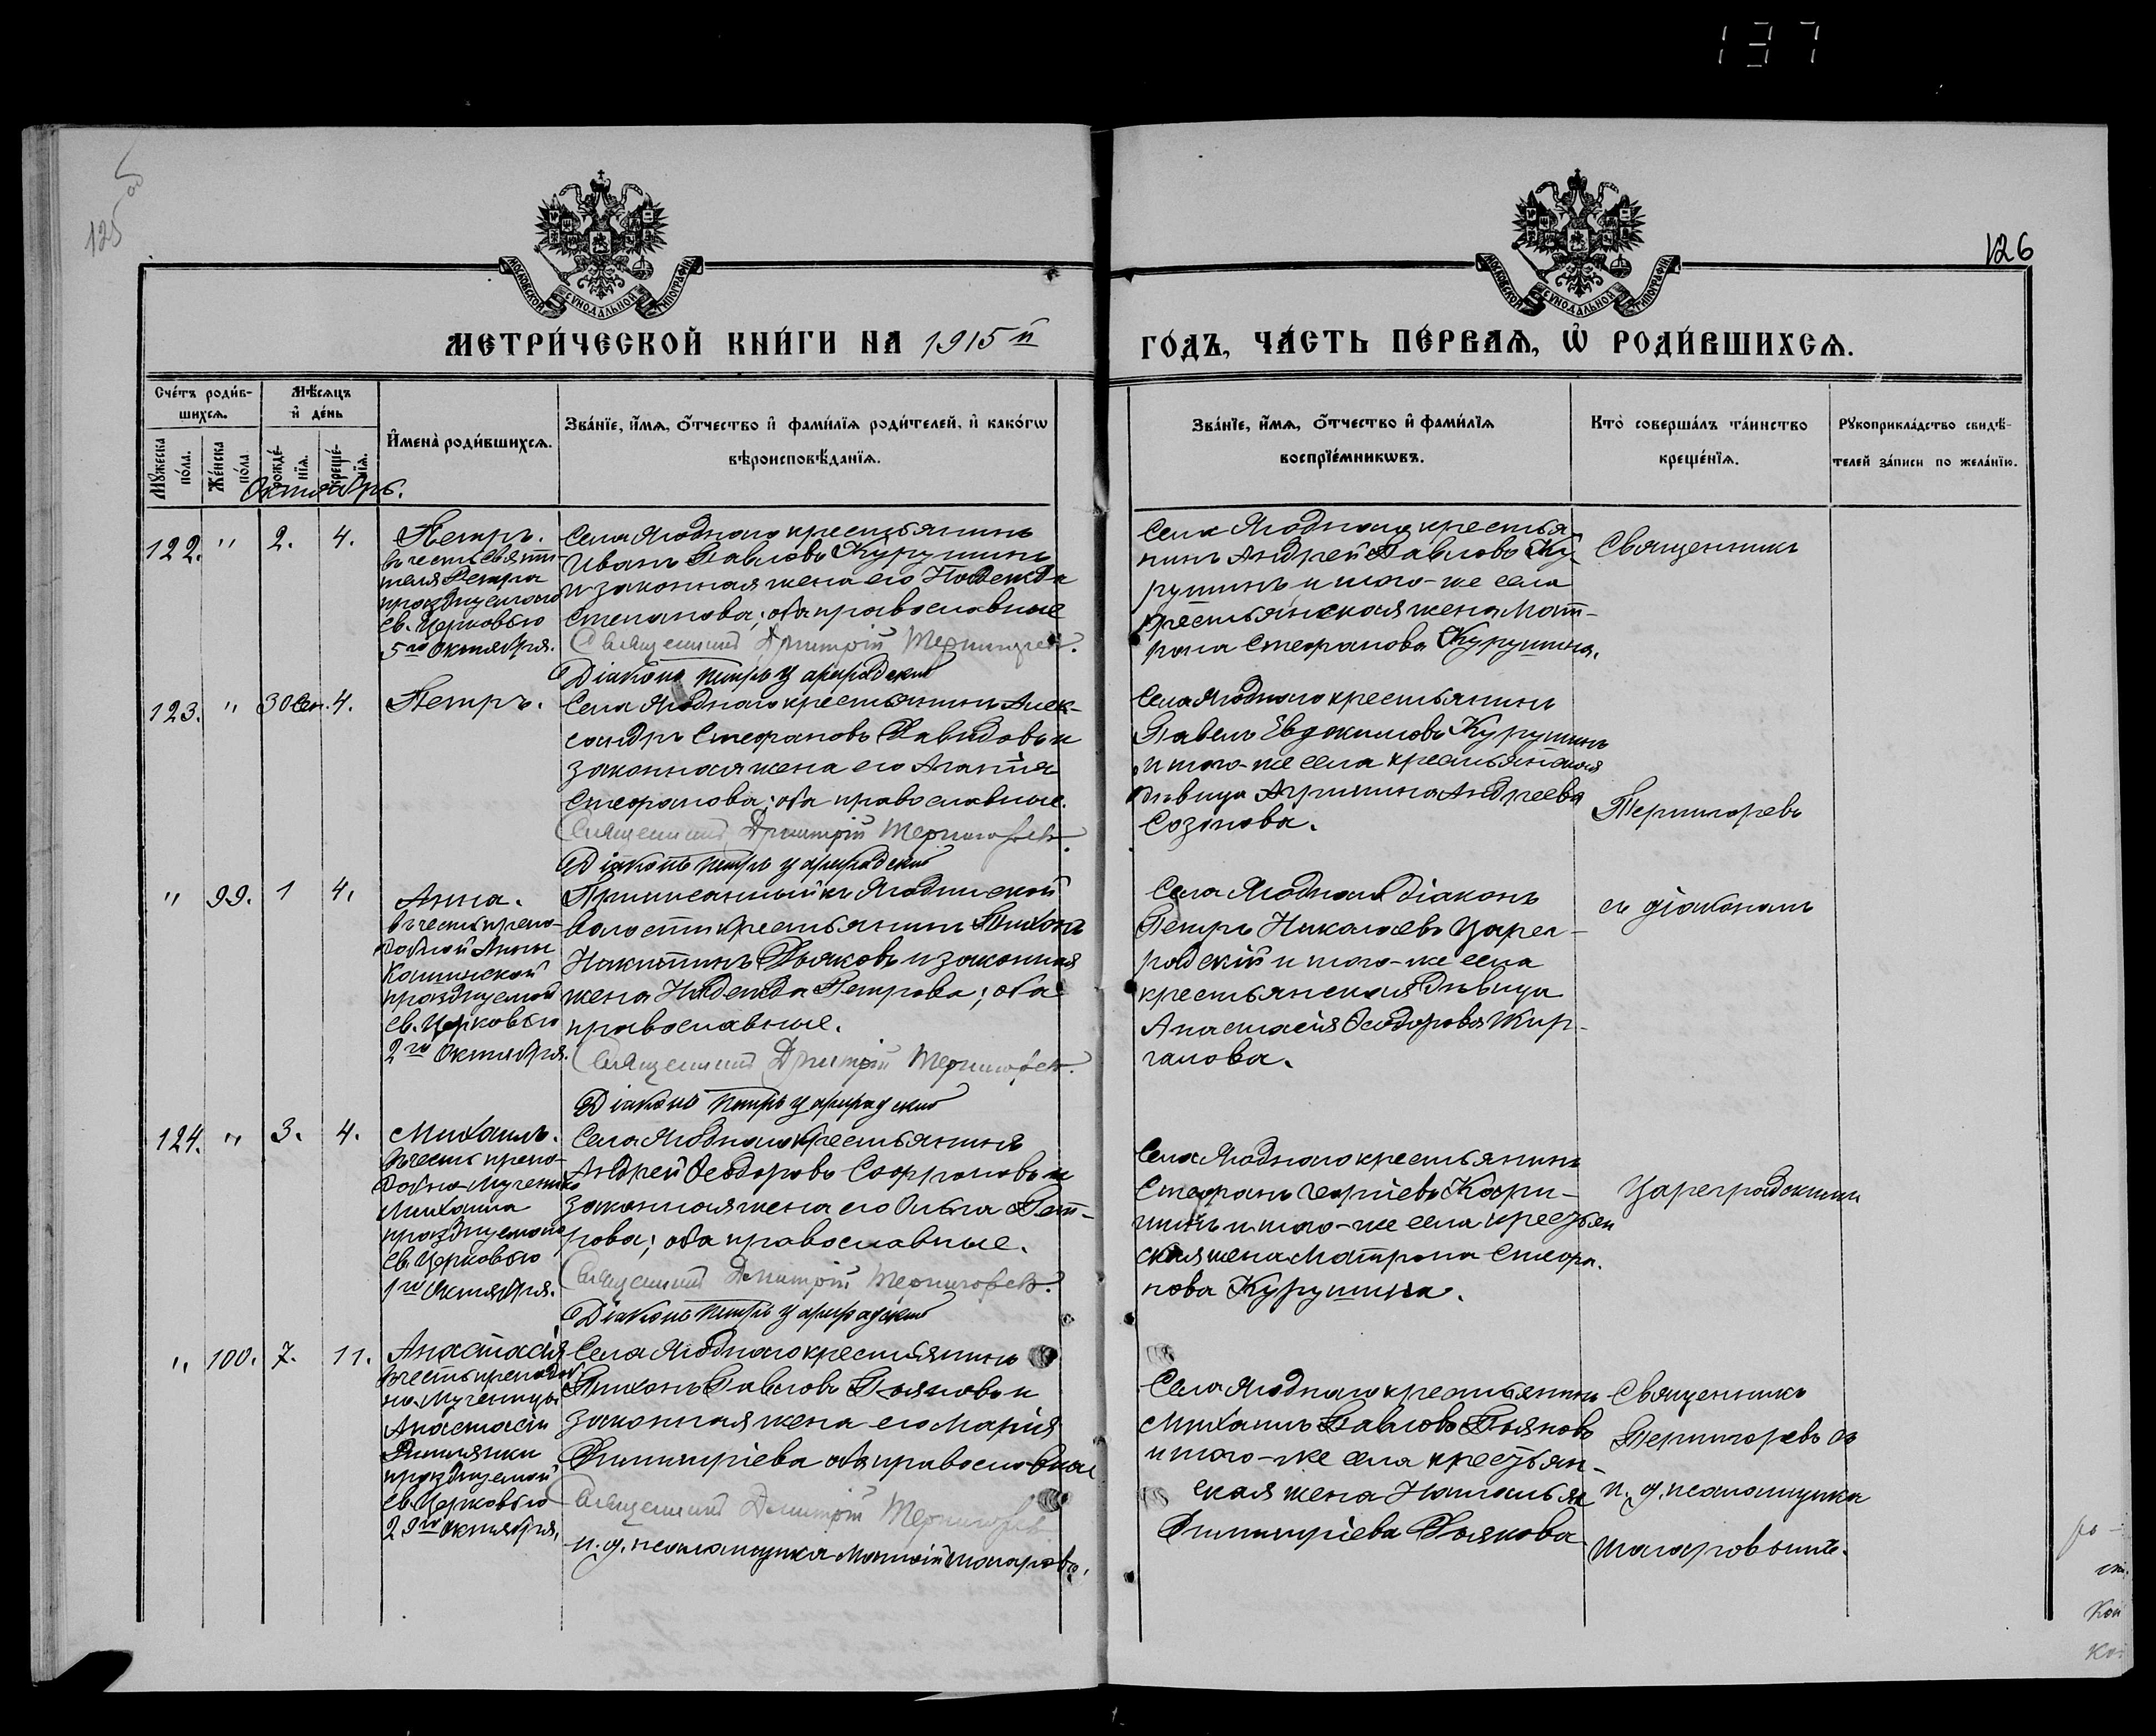 137
125 об
126
МОСКОВСКОЙ СѴНОДАЛЬНОЙ ТИПОГРАФІИ
МОСКОВСКОЙ СѴНОДАЛЬНОЙ ТИПОГРАФІИ
МЕТРИ́ЧЕСКОЙ КНИ́ГИ НА 1915й
ГО́ДЪ, ЧА́СТЬ ПЕ́РВАѦ, Ѡ҆ РОДИ́ВШИХСѦ.
Сче́тъ роди́в-
шихсѧ.
Мѣ́сѧцъ
и҆ де́нь
Мꙋ́жеска
по́ла.
Же́нска
по́ла
рожде́-
нїѧ.
креще́-
нїѧ.
И҆мена̀ роди́вшихсѧ.
Зва́нїе, и҆́мѧ, ѻ҆́тчество и҆ фами́лїѧ роди́телей, и҆ како́гѡ
вѣроисповѣ́данїѧ.
Зва́нїе, и҆́мѧ, ѻ҆́тчество и҆ фами́лїѧ
воспрїе́мникѡвъ.
Кто̀ соверша́лъ та́инство
креще́нїѧ.
Рꙋкоприкла́дство свидѣ́-
телей за́писи по жела́нїю.
Октябрь.
122. " 2. 4.
Петръ.
въ честь святи-
теля Петра
празднуемаго
св. Церковью
5го Октября.
Села Ягоднаго крестьянинъ
Иванъ Павловъ Курушинъ
и законная жена его Надежда
Степанова; оба православные
Священникъ Дмитрій Терпигоревъ.
Діаконъ Петръ Цареградскій
Села Ягоднаго крестья-
нинъ Андрей Павловъ Ку-
рушинъ и того-же села
крестьянская жена Мат-
рона Стефанова Курушина.
Священникъ
123. " 30 Сен. 4.
Петръ.
Села Ягоднаго крестьянинъ Алек-
сандръ Стефановъ Давидовъ и
законная жена его Агапія
Стефанова; оба православные.
Священникъ Дмитрій Терпигоревъ.
Діаконъ Петръ Цареградскій
Села Ягоднаго крестьянинъ
Павелъ Евдокимовъ Курушинъ
и того-же села крестьянская
дѣвица Агрипина Андреева
Созонова.
Терпигоревъ
" 99. 1 4.
Анна.
въ честь препо-
добной Анны
Кашинской
празднуемой
св. Церковью
2го Октября.
Приписанный къ Ягодинской
волости крестьянинъ Тихонъ
Никитинъ Дьяковъ и законная
жена Надежда Петрова; оба
православные.
Священникъ Дмитрій Терпигоревъ.
Діаконъ Петръ Цареградскій
Села Ягоднаго діаконъ
Петръ Николаевъ Царег-
радскій и того-же села
крестьянская дѣвица
Анастасія Ѳеодорова Жир-
ганова.
съ діакономъ
124. " 3. 4.
Михаилъ.
въ честь препо-
добно-мученика
Михаила
празднуемаго
св. Церковью
1го Октября.
Села Ягоднаго крестьянинъ
Андрей Ѳеодоровъ Софроновъ и
законная жена его Ольга Пет-
рова; оба православные.
Священникъ Дмитрій Терпигоревъ.
Діаконъ Петръ Цареградскій
Села Ягоднаго крестьянинъ
Стефанъ Георгіевъ Кафи-
шинъ и того-же села крестьян
ская жена Матрона Стефа-
нова Курушина.
Цареградскимъ
" 100. 7. 11.
Анастасія
въ честь преподоб-
но-мученицы
Анастасіи
Римлянки
празднуемой
св. Церковью
29го Октября,
Села Ягоднаго крестьянинъ
Тихонъ Павловъ Пьяновъ и
законная жена его Марія
Димитріева оба православные
Священникъ Дмитрій Терпигоревъ
и. д. псаломщика
Села Ягоднаго крестьянинъ
Михаилъ Павловъ Пьяновъ
и того-же села крестьян-
ская жена Наталья
Димитріева Дьякова
Священникъ
Терпигоревъ съ
и. д. псаломщика